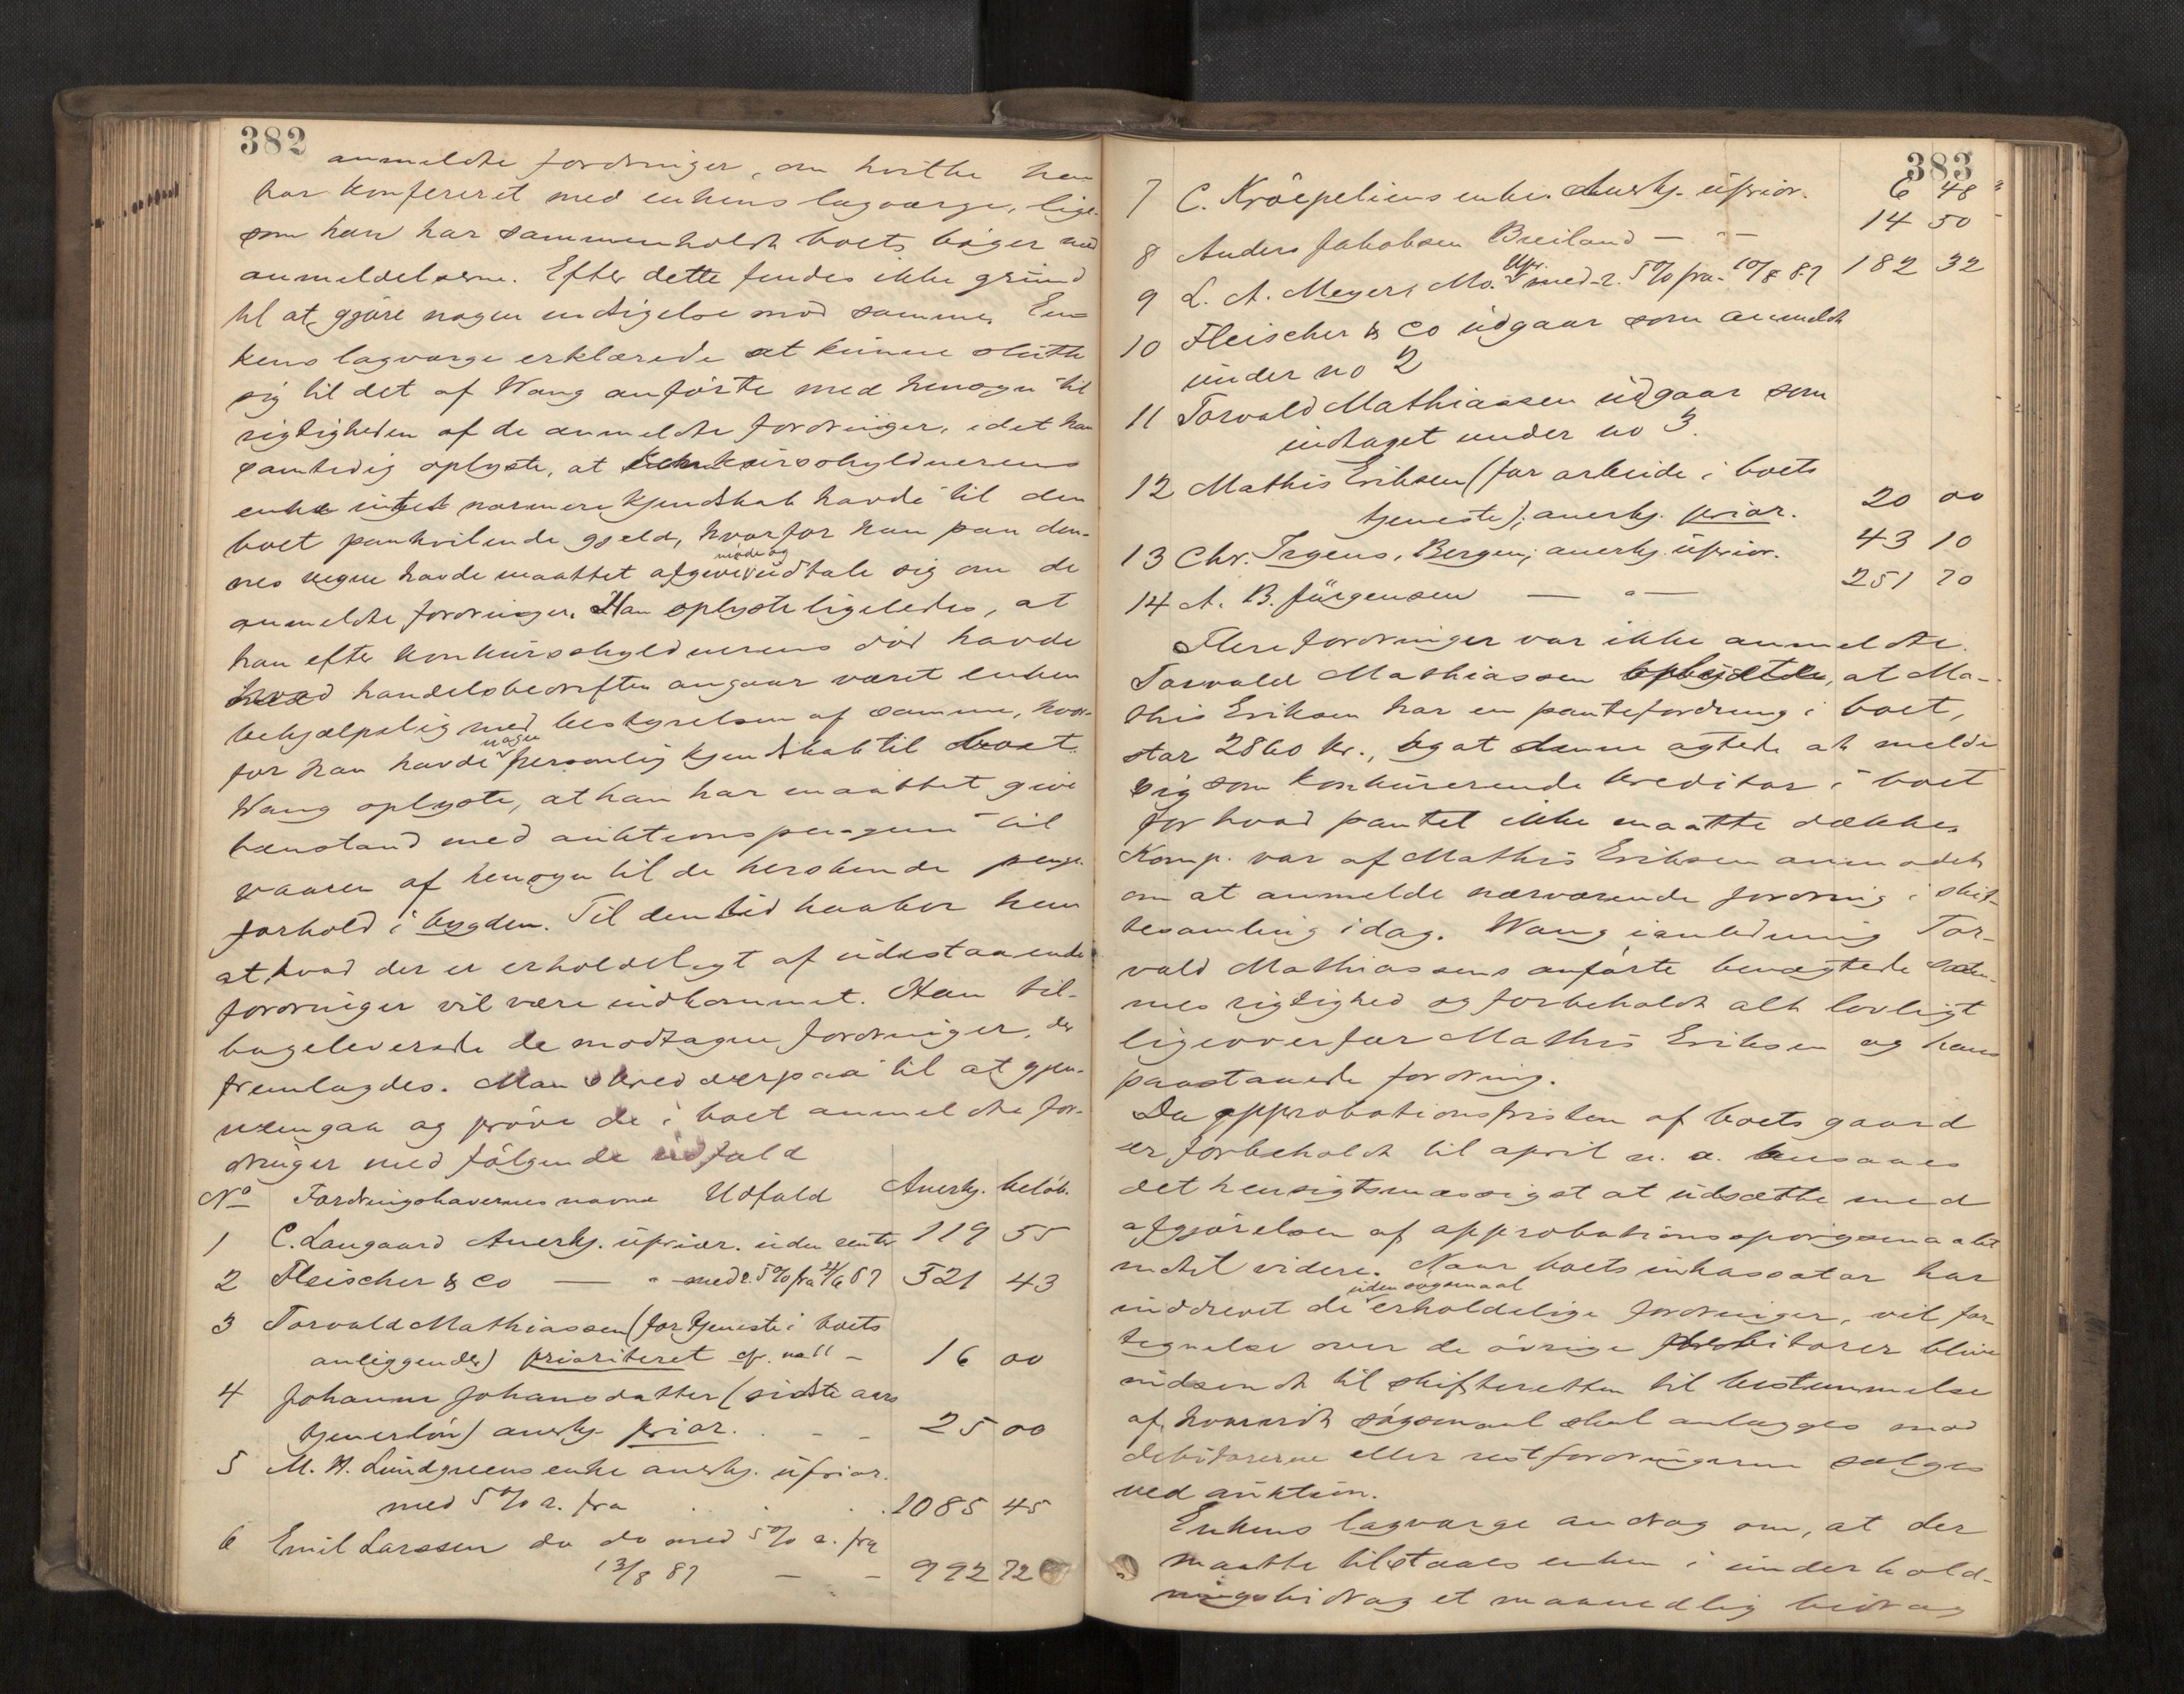 382
anmeldte fordringer, om hvilke han
har konfereret med enkens lagværge, lige-
som han har sammenholdt boets bøger med
anmeldelserne. Efter dette findes ikke grund
til at gjøre nogen indsigelse mod samme. En-
kens lagværge erklærede at kunne slutte
sig til det af Wang anførte med hensyn til
rigtigheden af de anmeldte fordringer, idet han
samtidig oplyste, at konkursskyldnerens
enke intet nærmere kjendskab havde til den
boet paahvilende gjeld, hvorfor han paa den-
nes vegne havde maattet afgive møde og udtale sig om de
anmeldte fordringer. Han oplyste ligeledes, at
han efter konkursskyldnerens død havde
hvad handelsbedriften angaar været enken
behjælpelig med bestyrelsen af samme, hvor-
for han havde nogen personlig kjendskab til boet.
Wang oplyste, at han har maattet give
henstand med auktionspengene til
vaaren af hensyn til de herskende penge-
forhold i bygden. Til den tid haaber han
at hvad der er erholdeligt af udestaaende
fordringer vil være indkommet. Han til-
bageleverede de modtagne fordringer, der
fremlagdes. Man skred derpaa til at gjen-
nemgaa og prøve de i boet anmeldte for-
dringer med følgende udfald
No Fordringshavernes navne Udfald Anerkj. beløb.
1 C. Langaard Anerkj. uprior. uden rente 119 55
2 Fleischer & Co — " — med r. 5% fra 21/6 87 521 43
3 Torvald Mathiassen (for tjeneste i boets
anliggender) prioriteret cfr. no 11 — 16 00
4 Johanne Johansdatter (sidste aars
tjenerløn) anerkj. prior. . — — 25 00
5 M. H. Lundgreens enke anerkj. uprior.
med 5% r. fra . . . 1085 45
6 Emil Larssen do do med 5% r. fra
13/8 87 — — 992 72
383
7 C. Kröepeliens enke. Anerkj. uprior. 6 48
8 Anders Jakobsen Breiland — " — 14 50
9 L. A. Meyer, Mo. Upr. med r. 5% fra 10/8 87 182 32
10 Fleischer & Co udgaar som anmeldt
under no 2
11 Torvald Mathiassen udgaar som
indtaget under no 3.
12 Mathis Eriksen (for arbeide i boets
tjeneste); anerkj. prior. 20 00
13 Chr. Irgens, Bergen; anerkj. uprior. 43 10
14 A. B. Jürgensen — " — 251 70
Flere fordringer var ikke anmeldte.
Torvald Mathiassen oplyste, at Ma-
this Eriksen har en pantefordring i boet,
stor 2860 kr., og at denne agtede at melde
sig som konkurerende kreditor i boet
for hvad pantet ikke maatte dække.
Komp. var af Mathis Eriksen anmodet
om at anmelde nærværende fordring i skif-
tesamling idag. Wang i anledning Tor-
vald Mathiassens anførte benægtede den-
nes rigtighed og forbeholdt alt lovligt
ligeoverfor Mathis Eriksen og hans
paastaaede fordring.
Da approbationsfristen af boets gaard
er forbeholdt til april n. a. ansaaes
det hensigtsmæssigst at udsætte med
afgjørelsen af approbationsspørgsmaalet
indtil videre. Naar boets inkassator har
inddrevet de uden søgsmaal erholdelige fordringer, vil for-
tegnelse over de øvrige debitorer blive
indsendt til skifteretten til bestemmelse
af, hvorvidt søgsmaal skal anlægges mod
debitorerne eller restfordringerne sælges
ved auktion.
Enkens lagværge androg om, at der
maatte tilstaaes enken i underhold-
ningsbidrag et maanedlig bidrag